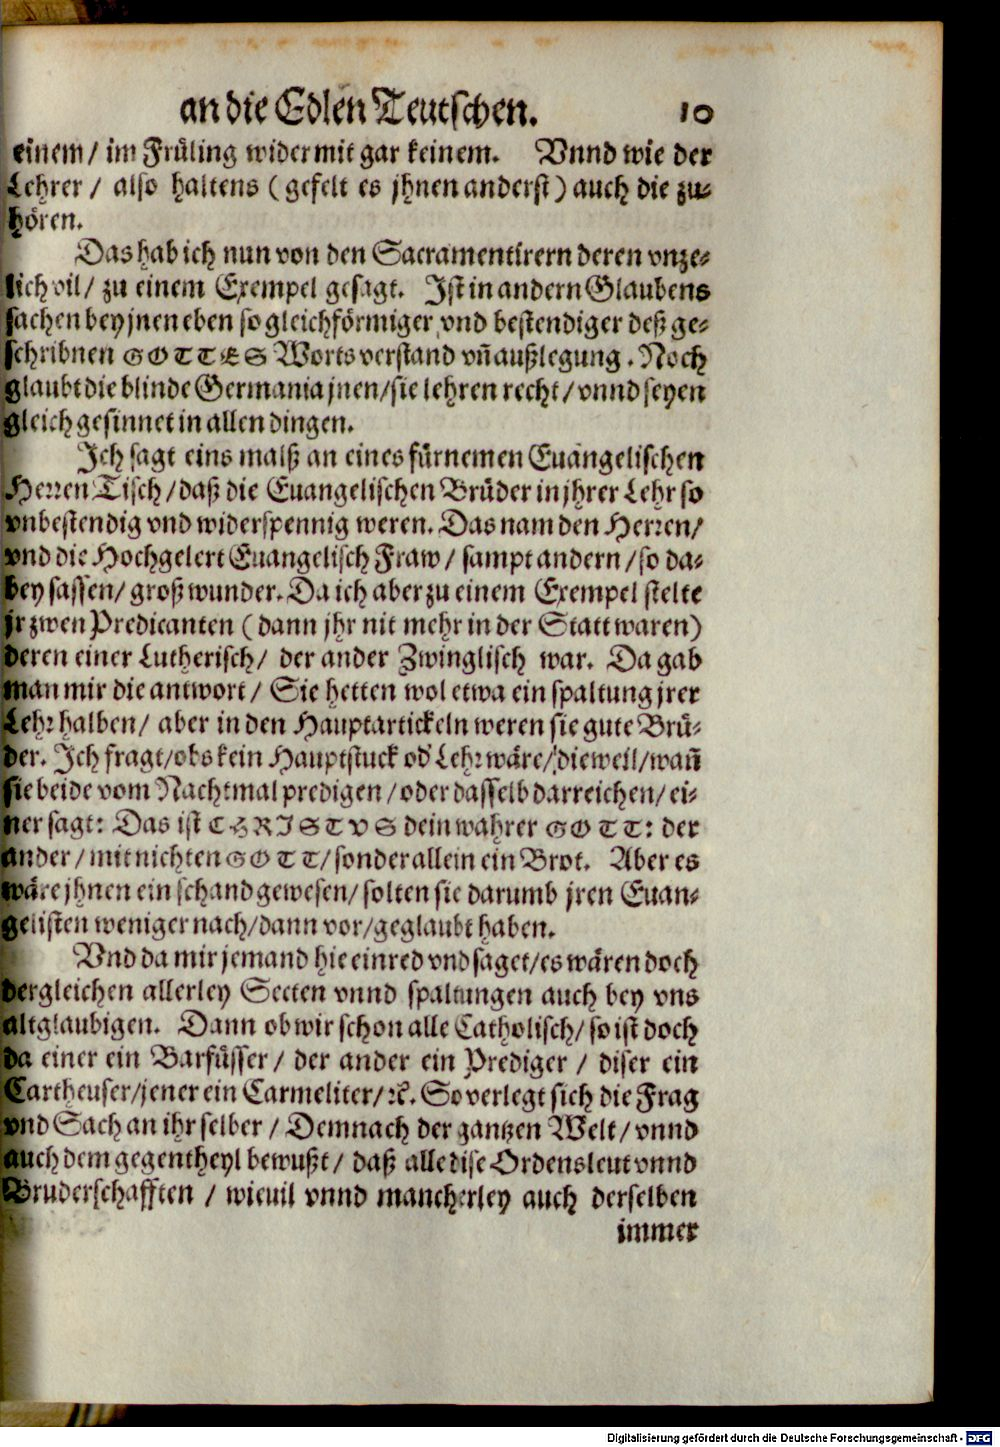 an die Edlen Teutschen. 10
einem / im Früling wider mit gar keinem. Vnnd wie der
Lehrer / also haltens (gefelt es jhnen anderst) auch die zu-
hören.
Das hab ich nun von den Sacramentirern deren vnze-
lich vil / zu einem Exempel gesagt. Ist in andern Glaubens
sachen bey jnen eben so gleichförmiger vnd bestendiger deß ge-
schribnen GOTTES Worts verstand vñ außlegung. Noch
glaubt die blinde Germania jnen / sie lehren recht / vnnd seyen
gleich gesinnet in allen dingen.
Ich sagt eins malß an eines fürnemen Euangelischen
Herren Tisch / daß die Euangelischen Brüder in jhrer Lehr so
vnbestendig vnd widerspennig weren. Das nam den Herren /
vnd die Hochgelert Euangelisch Fraw / sampt andern / so da-
bey sassen / groß wunder. Da ich aber zu einem Exempel stelte
jr zwen Predicanten (dann jhr nit mehr in der Statt waren)
deren einer Lutherisch / der ander Zwinglisch war. Da gab
man mir die antwort / Sie hetten wol etwa ein spaltung jrer
Lehr halben / aber in den Hauptartickeln weren sie gute Brü-
der. Ich fragt / obs kein Hauptstuck od' Lehr wäre / dieweil / wañ
sie beide vom Nachtmal predigen / oder dasselb darreichen / ei-
ner sagt: Das ist CHRISTVS dein wahrer GOTT: der
ander / mit nichten GOTT / sonder allein ein Brot. Aber es
wäre jhnen ein schand gewesen / solten sie darumb jren Euan-
gelisten weniger nach / dann vor / geglaubt haben.
Vnd da mir jemand hie einred vnd saget / es wären doch
dergleichen allerley Secten vnnd spaltungen auch bey vns
altglaubigen. Dann ob wir schon alle Catholisch / so ist doch
da einer ein Barfüsser / der ander ein Prediger / diser ein
Cartheuser / jener ein Carmeliter / ꝛc. So verlegt sich die Frag
vnd Sach an ihr selber / Demnach der gantzen Welt / vnnd
auch dem gegentheyl bewußt / daß alle dise Ordensleut vnnd
Bruderschafften / wieuil vnnd mancherley auch derselben
immer
Digitalisierung gefördert durch die Deutsche Forschungsgemeinschaft - DFG